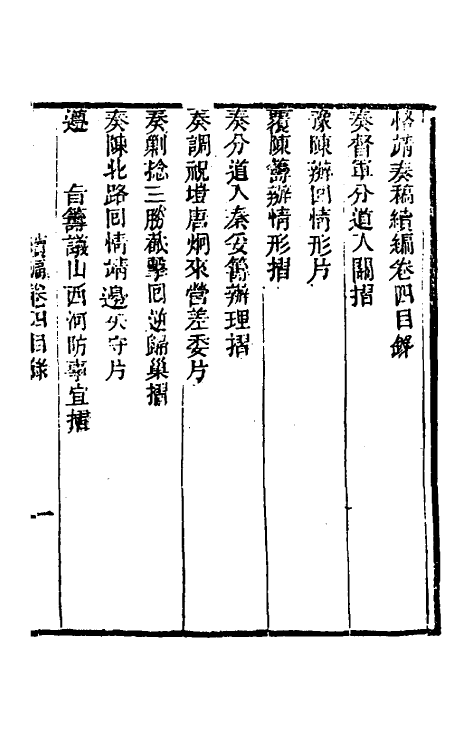 恪靖奏稿續編卷四目錄
奏督軍分道入關摺
豫陳辦回情形片
覆陳籌辦情形摺
奏分道入秦妥籌辦理摺
奏調祝塏唐炯來營差委片
奏剿捻三勝截擊回逆歸巢摺
奏陳北路回情靖邊失守片
遵　旨籌議山西河防事宜摺
續編卷四目錄
一